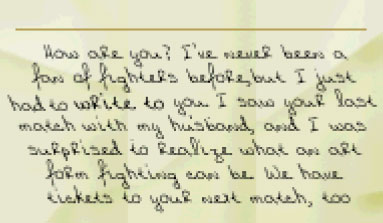 How are you? I've never been a
fan of fighters before, but I just
had to write to you. I saw your last
match with my husband, and I was
surprised to realize what an art
form fighting can be. We have
tickets to your next match, too